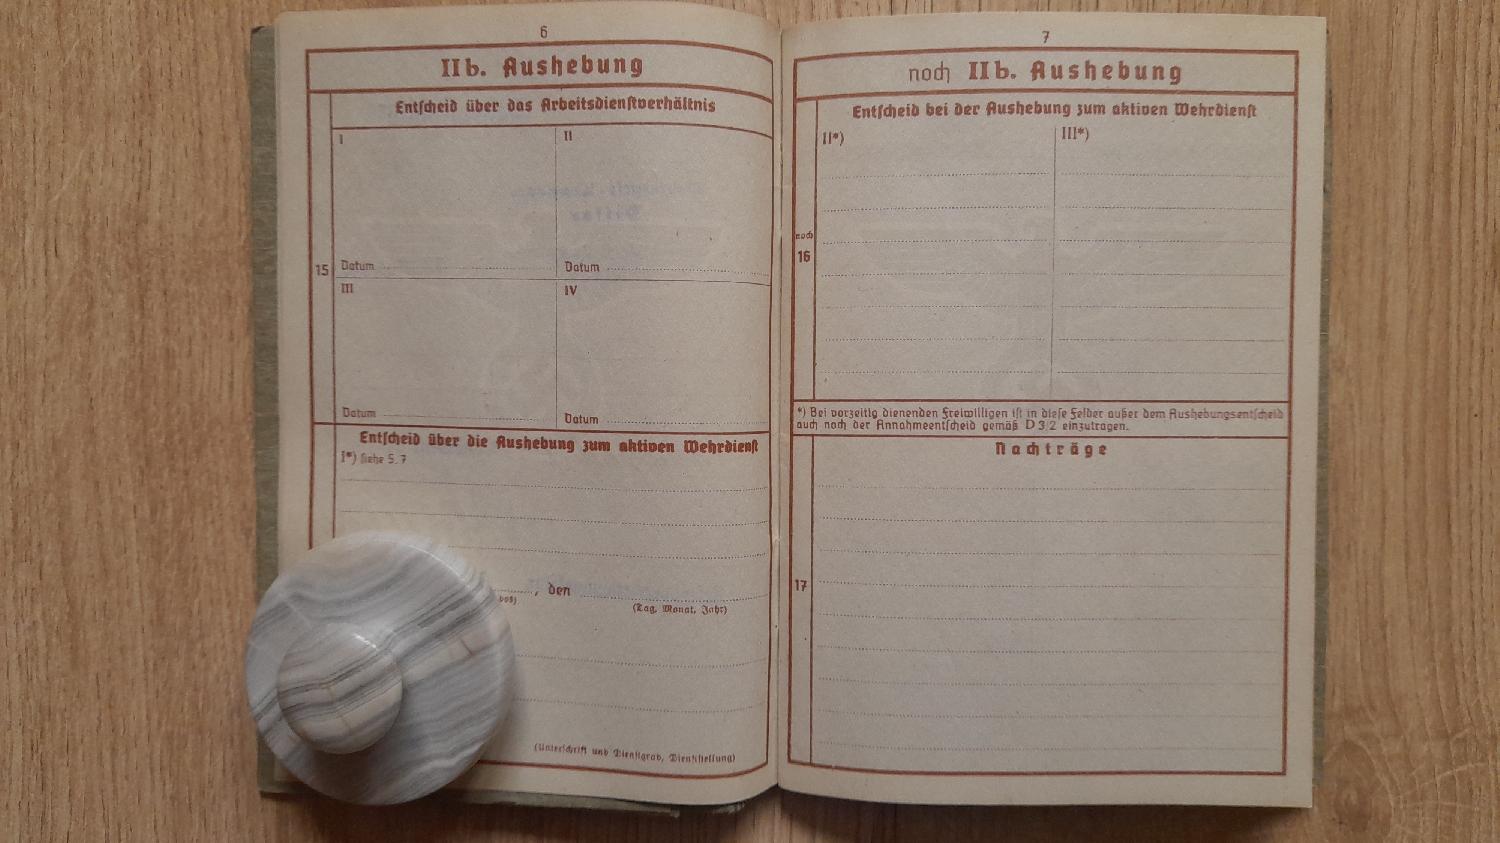 6
II b. Aushebung
Entscheid über das Arbeitsdienstverhältnis
I
II
15
Datum
Datum
III
IV
Datum
Datum
Entscheid über die Aushebung zum aktiven Wehrdienst
I*) siehe S. 7
, den
(Tag, Monat, Jahr)
(Unterschrift und Dienstgrad, Dienststellung)
7
noch II b. Aushebung
Entscheid bei der Aushebung zum aktiven Wehrdienst
II*)
III*)
noch
16
*) Bei vorzeitig dienenden Freiwilligen ist in diese Felder außer dem Aushebungsentscheid
auch noch der Annahmeentscheid gemäß D 3/2 einzutragen.
Nachträge
17